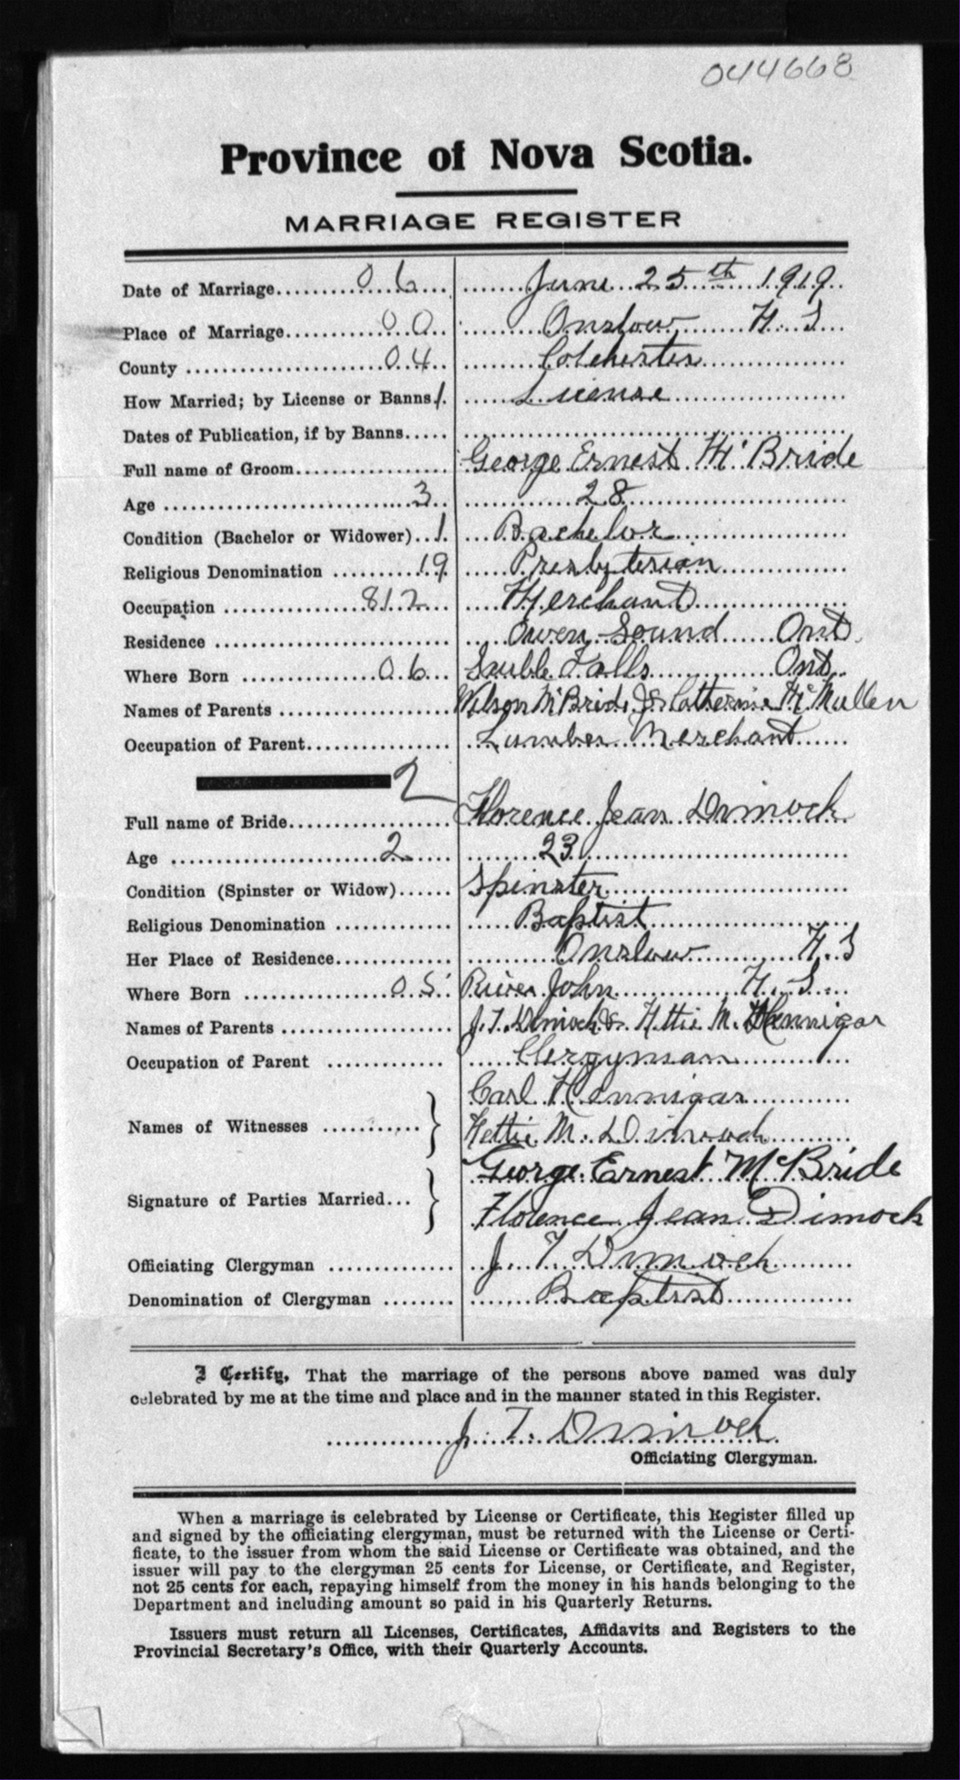 044668
Province of Nova Scotia.
MARRIAGE REGISTER
Date of Marriage 06 June 25th 1919
Place of Marriage 00 Onslow N. S
County 04 Colchester
How Married; by License or Banns 1 License
Dates of Publication, if by Banns
Full name of Groom George Ernest McBride
Age 3 28
Condition (Bachelor or Widower) 1 Bachelor
Religious Denomination 19 Presbyterian
Occupation 812 Merchant
Residence Owen Sound Ont
Where Born 06 Sauble Falls Ont
Names of Parents Wilson McBride & Catherine McMullen
Occupation of Parent Lumber Merchant
2
Full name of Bride Florence Jean Dimock
Age 2 23
Condition (Spinster or Widow) Spinster
Religious Denomination Baptist
Her Place of Residence Onslow N. S
Where Born 05 River John N. S.
Names of Parents J. T. Dimock & Hettie M. Hennigar
Occupation of Parent Clergyman
Carl Hennigar
Names of Witnesses
Hettie M. Dimock
George Ernest McBride
Signature of Parties Married
Florence Jean Dimock
Officiating Clergyman J. T. Dimock
Denomination of Clergyman Baptist
I Certify, That the marriage of the persons above named was duly
celebrated by me at the time and place and in the manner stated in this Register.
J. T. Dimock
Officiating Clergyman.
When a marriage is celebrated by License or Certificate, this Register filled up
and signed by the officiating clergyman, must be returned with the License or Certi-
ficate, to the issuer from whom the said License or Certificate was obtained, and the
issuer will pay to the clergyman 25 cents for License, or Certificate, and Register,
not 25 cents for each, repaying himself from the money in his hands belonging to the
Department and including amount so paid in his Quarterly Returns.
Issuers must return all Licenses, Certificates, Affidavits and Registers to the
Provincial Secretary's Office, with their Quarterly Accounts.